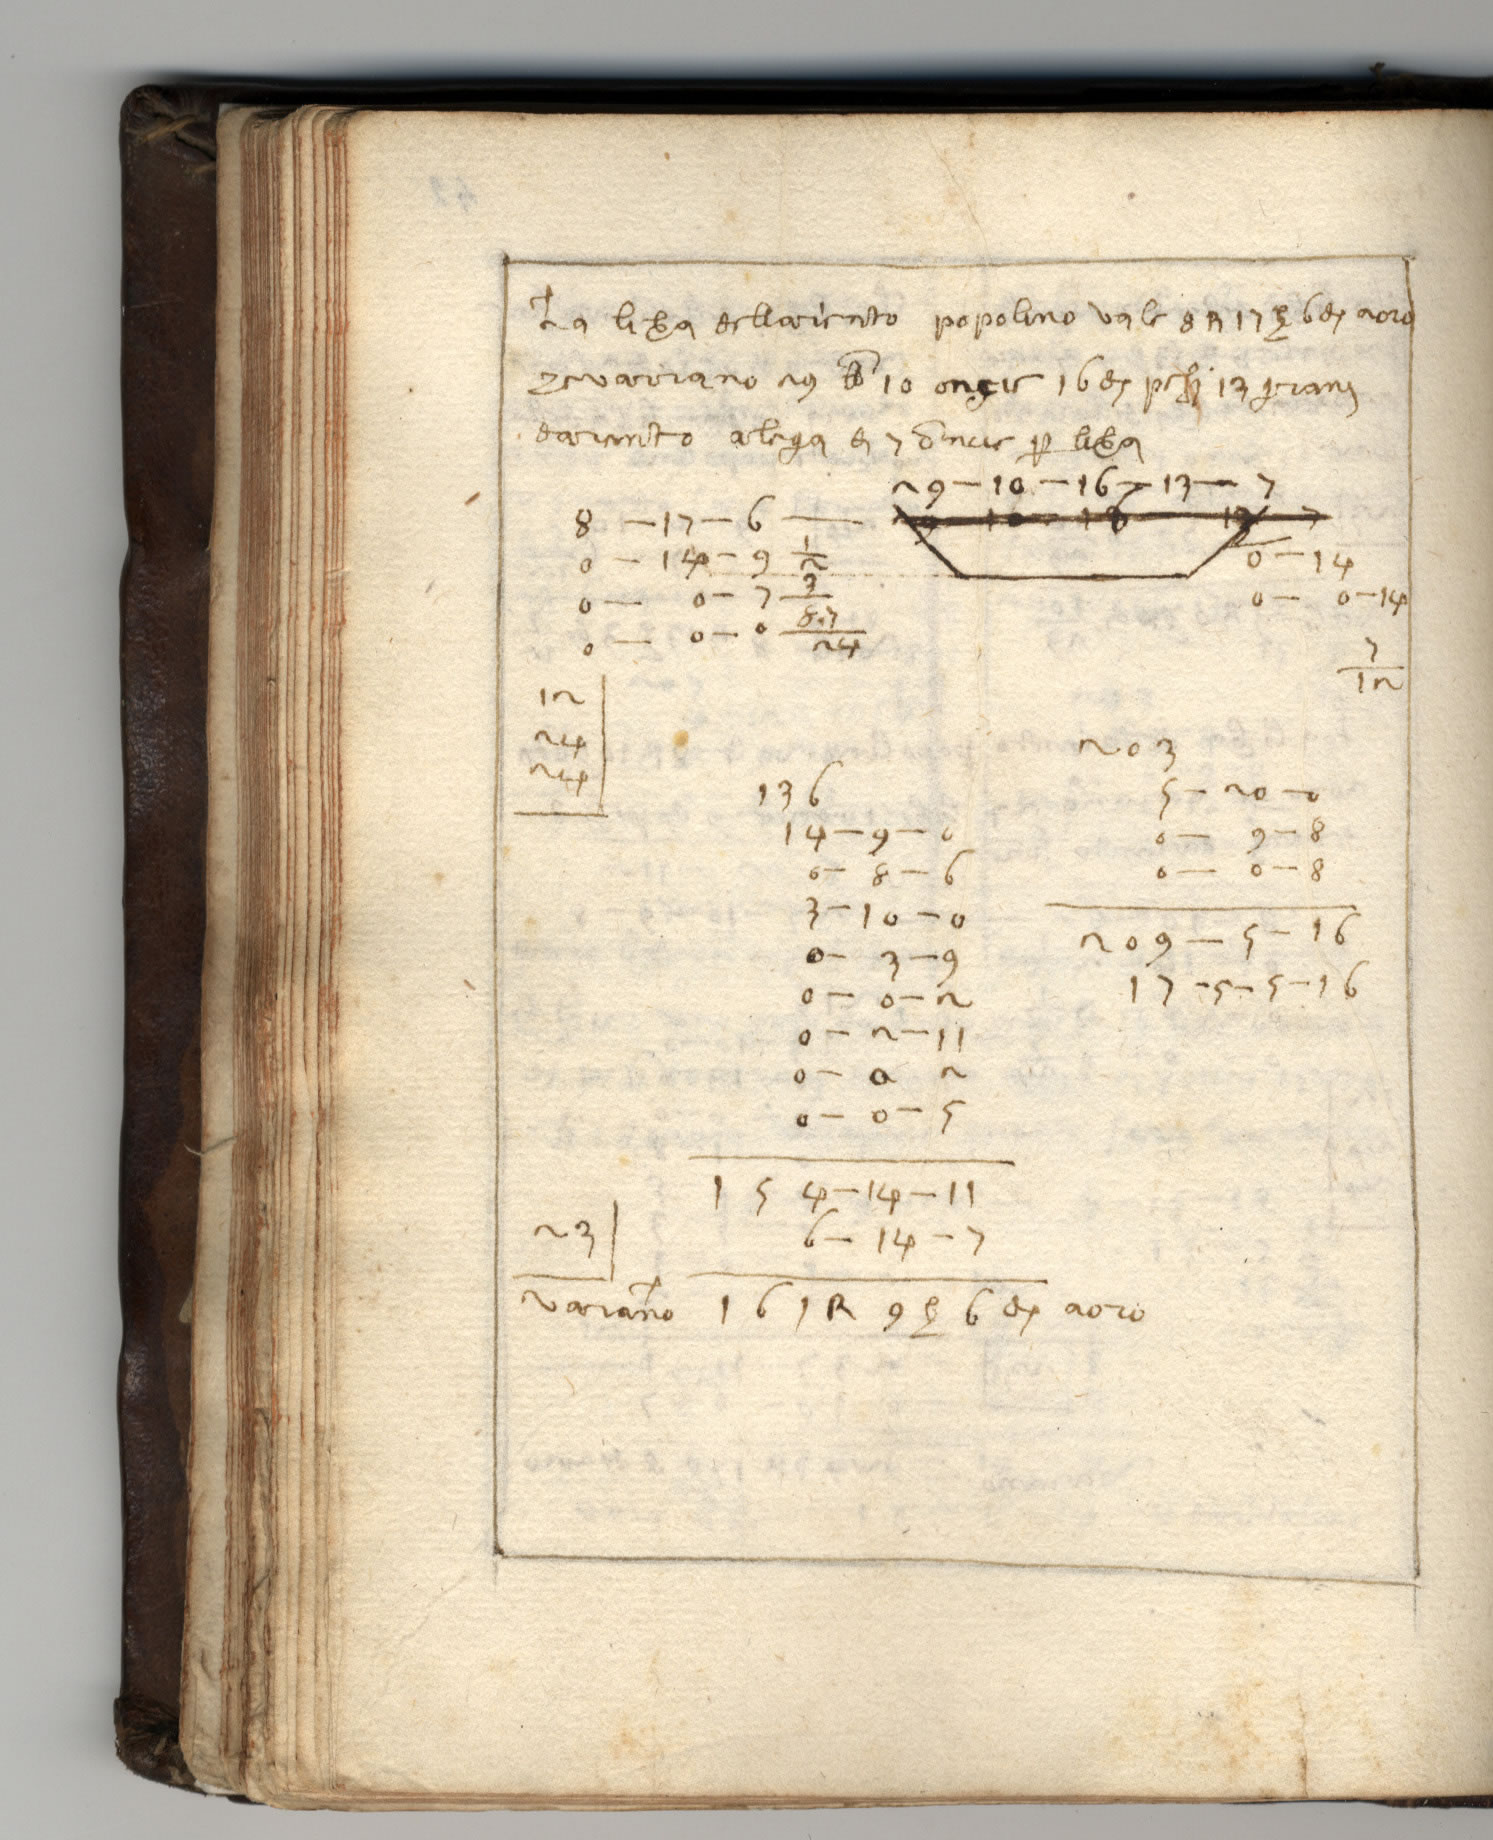 La libra dellariento popolino vale 8 R 17 ß 6 d aoro
che varranno 29 lb 10 oncie 16 d pesi 13 grani
dariento alega di 7 oncie p libra
29—10—16—13—7
8—17—6——29—10—16—13—7
0—14—9 1/2 0—14
0—0—7 3/8 0—0—14
0—0—0 87/24
7/12
12
24 203
24
136 5—20—0
14—9—0 0—9—8
0—8—6 0—0—8
3—10—0
0—3—9 209—5—16
0—0—2 17—5—5—16
0—2—11
0—0 2
0—0—5
154—14—11
23 6—14—7
varano 161 R 9 ß 6 d aoro